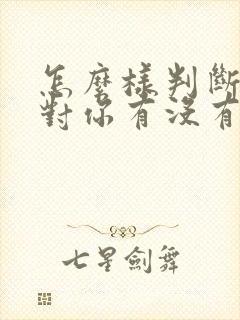 怎麼樣判斷
對你有沒有
七星劍舞